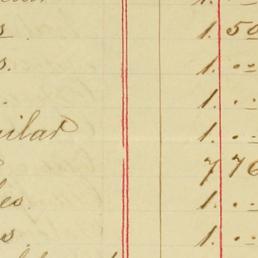 1.
s 1 50
s. 1 ..
. 1. ..
uilar 1. ..
7 76
les. 1. ..
s 1. ..